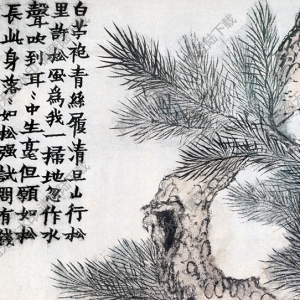 白苎袍青絲履清旦山行松
里許松風為我一掃地忽作水
聲吹到耳〻中生亳但願如松
長此身落〻如松强試問有錢